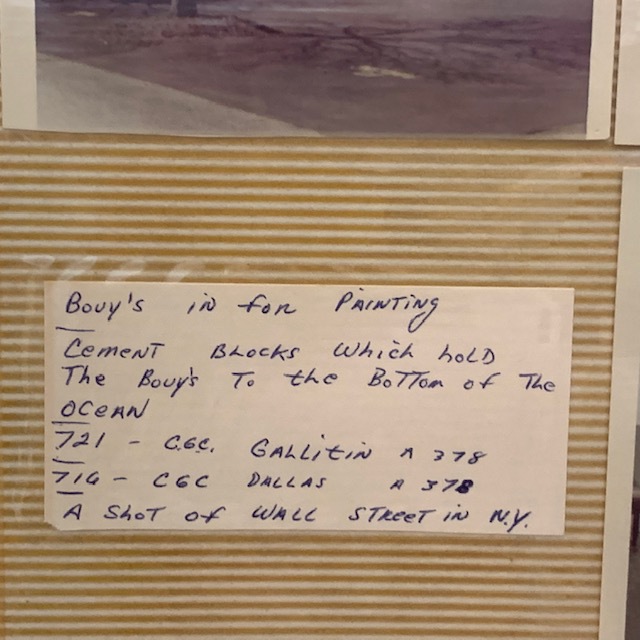 Bouy's in for Painting
Cement Blocks which hold
The Bouy's To the Bottom of The
Ocean
721 - C.G.C. GALLiTiN A 378
716 - CGC DALLAS A 378
A Shot of WALL STREET in N.Y.